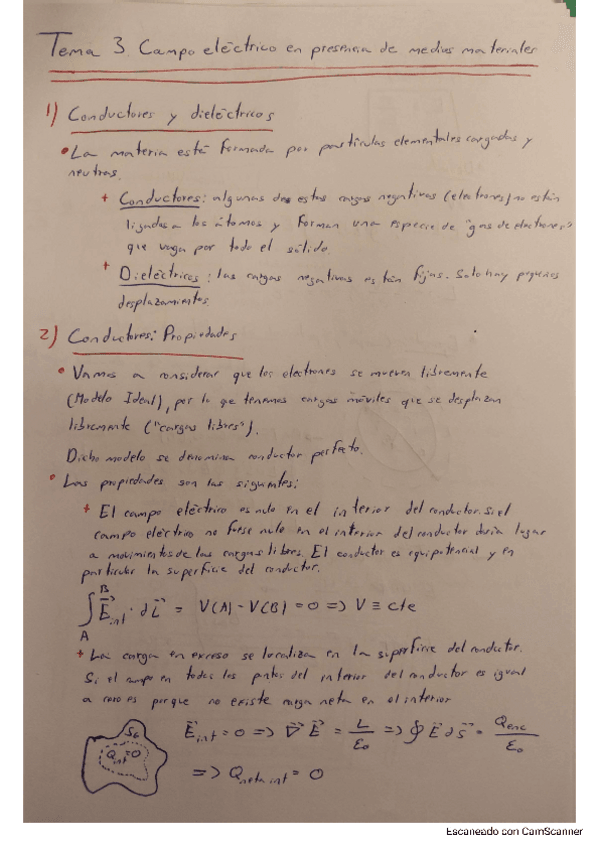 Tema 3. Campo eléctrico en presencia de medios materiales
1) Conductores y dieléctricos
• La materia está formada por partículas elementales cargadas y
neutras.
+ Conductores: algunas de estas cargas negativas (electrones) no están
ligadas a los átomos y forman una especie de "gas de electrones"
que vaga por todo el sólido.
+ Dieléctricos: las cargas negativas están fijas. Solo hay pequeños
desplazamientos
2) Conductores: Propiedades
• Vamos a considerar que los electrones se mueven libremente
(Modelo Ideal), por lo que tenemos cargas móviles que se desplazan
libremente ("cargas libres").
Dicho modelo se denomina conductor perfecto.
• Las propiedades son las siguientes:
+ El campo eléctrico es nulo en el interior del conductor. Si el
campo eléctrico no fuese nulo en el interior del conductor daría lugar
a movimientos de las cargas libres. El conductor es equipotencial y en
particular la superficie del conductor.
∫_A^B E⃗_int · dL⃗ = V(A) - V(B) = 0 => V ≡ cte
+ La carga en exceso se localiza en la superficie del conductor.
Si el campo en todos los puntos del interior del conductor es igual
a cero es porque no existe carga neta en el interior
S_G
Q_int = 0
E⃗_int = 0 => ∇⃗ E⃗ = L/ε₀ => ∮ E⃗ ds⃗ = Q_enc/ε₀
=> Q_neta int = 0
Escaneado con CamScanner